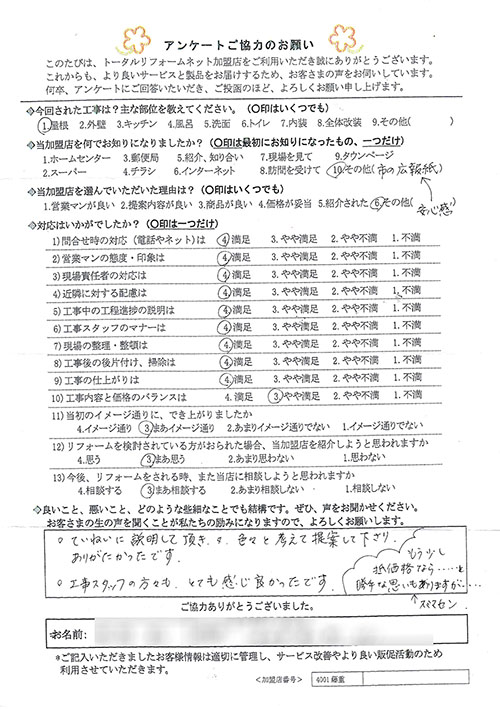 アンケートご協力のお願い
このたびは、トータルリフォームネット加盟店をご利用いただき誠にありがとうございます。
これからも、より良いサービスと製品をお届けするため、お客さまの声をお伺いしています。
何卒、アンケートにご回答いただき、ご投函のほど、よろしくお願い申し上げます。
◆今回された工事は?主な部位を教えてください。(〇印はいくつでも)
1.屋根 2.外壁 3.キッチン 4.風呂 5.洗面 6.トイレ 7.内装 8.全体改装 9.その他( )
◆当加盟店を何でお知りになりましたか?(〇印は最初にお知りになったもの、一つだけ)
1.ホームセンター 3.郵便局 5.紹介、知り合い 7.現場を見て 9.タウンページ
2.スーパー 4.チラシ 6.インターネット 8.訪問を受けて 10.その他(市の広報紙)
◆当加盟店を選んでいただいた理由は?(〇印はいくつでも)
1.営業マンが良い 2.提案内容が良い 3.商品が良い 4.価格が妥当 5.紹介された 6.その他( )
安心感
◆対応はいかがでしたか?(〇印は一つだけ)
1)問合せ時の対応(電話やネット)は 4.満足 3.やや満足 2.やや不満 1.不満
2)営業マンの態度・印象は 4.満足 3.やや満足 2.やや不満 1.不満
3)現場責任者の対応は 4.満足 3.やや満足 2.やや不満 1.不満
4)近隣に対する配慮は 4.満足 3.やや満足 2.やや不満 1.不満
5)工事中の工程進捗の説明は 4.満足 3.やや満足 2.やや不満 1.不満
6)工事スタッフのマナーは 4.満足 3.やや満足 2.やや不満 1.不満
7)現場の整理・整頓は 4.満足 3.やや満足 2.やや不満 1.不満
8)工事後の後片付け、掃除は 4.満足 3.やや満足 2.やや不満 1.不満
9)工事の仕上がりは 4.満足 3.やや満足 2.やや不満 1.不満
10)工事内容と価格のバランスは 4.満足 3.やや満足 2.やや不満 1.不満
11)当初のイメージ通りに、でき上がりましたか
4.イメージ通り 3.まあイメージ通り 2.あまりイメージ通りでない 1.イメージ通りでない
12)リフォームを検討されている方がおられた場合、当加盟店を紹介しようと思われますか
4.思う 3.まあ思う 2.あまり思わない 1.思わない
13)今後、リフォームをされる時、また当店に相談しようと思われますか
4.相談する 3.まあ相談する 2.あまり相談しない 1.相談しない
◆良いこと、悪いこと、どのような些細なことでも結構です。ぜひ、声をお聞かせください。
お客さまの生の声を聞くことが私たちの励みになりますので、よろしくお願いします。
○ ていねいに説明して頂き、色々と考えて提案して下さり
ありがたかったです。
○ 工事スタッフの方々も、とても感じ良かったです。
もう少し
低価格なら……と
勝手な思いもありますが……
↑スミマセン
ご協力ありがとうございました。
お名前:
*ご記入いただきましたお客様情報は適切に管理し、サービス改善やより良い販促活動のため
利用させていただきます。
<加盟店番号> 4001藤重